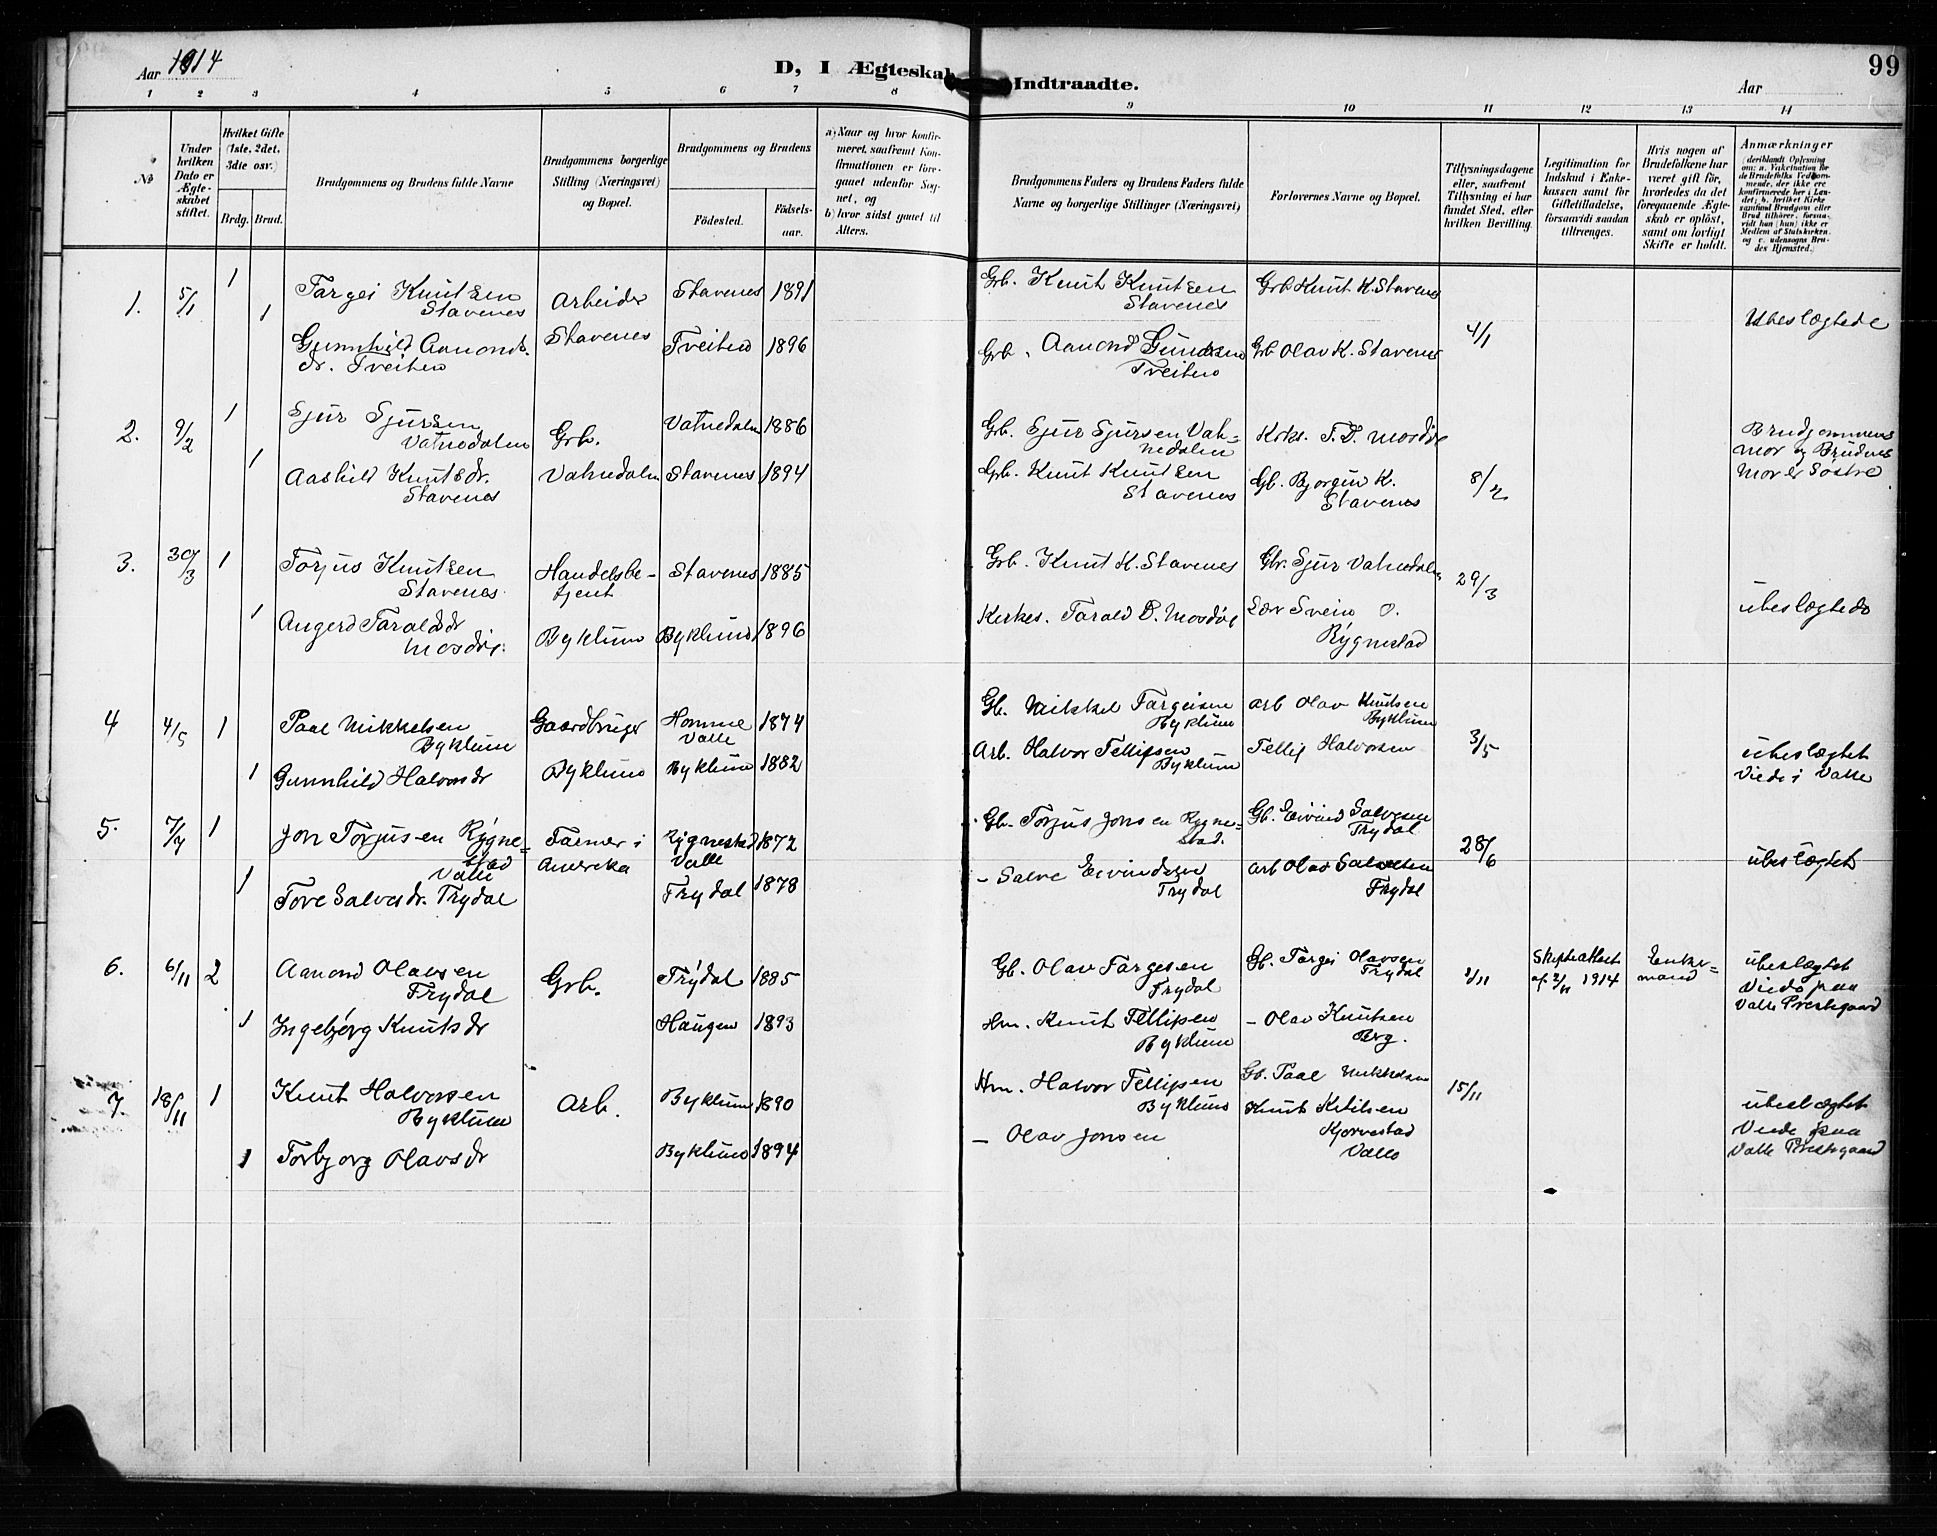 Aar 1914
D, I Ægteskab Indtraadte.
Aar
99
1 2 3 4 5 6 7 8 9 10 11 12 13 14
No
Under hvilken Dato er Ægteskabet stiftet.
Hvilket Gifte (1ste, 2det, 3die osv.)
Brdg. Brud.
Brudgommens og Brudens fulde Navne
Brudgommens borgerlige Stilling (Næringsvei) og Bopæl.
Brudgommens og Brudens
Födested.
Födsels-aar.
a) Naar og hvor konfirmeret, saafremt Konfirmationen er foregaaet udenfor Sognet, og
b) hvor sidst gaaet til Alters.
Brudgommens Faders og Brudens Faders fulde Navne og borgerlige Stillinger (Næringsvei)
Forlovernes Navne og Bopæl.
Tillysningsdagene eller, saafremt Tillysning ei har fundet Sted, efter hvilken Bevilling.
Legitimation for Indskud i Enkekassen samt for Giftetilladelse, forsaavidt saadan tiltrænges.
Hvis nogen af Brudefolkene har været gift för, hvorledes da det foregaaende Ægteskab er oplöst, samt om lovligt Skifte er holdt.
Anmærkninger
1. 5/1 1 Targei Knutsen Stavenes Arbeider Stavenes 1891 Grb. Knut Knutsen Stavenes Grb Knut K. Stavenes 4/1 Ubeslægtede
1 Gunnhild Aamonds dr. Tveiten Stavenes Tveiten 1896 Grb. Aamond Gundersen Tveiten Grb Olav K. Stavenes
2. 9/2 1 Sjur Sjursen Vatnedalen Grb. Vatnedalen 1886 Grb. Sjur Sjursen Vatnedalen Krks. T. D. Mosdøl 8/2 Brudgommens mor og Brudens mor er Søstre
1 Aashild Knutsdr. Stavenes Vatnedalen Stavenes 1894 Grb. Knut Knutsen Stavenes Gb. Bjorgin K. Stavenes
3. 30/3 1 Torjus Knutsen Stavenes Handelsbetjent Stavenes 1885 Grb. Knut K. Stavenes Gbr. Sjur Vatnedalen 29/3 ubeslægtede
1 Angerd Taraldsdr Mosdøl. Byklum Byklum 1896 Kirkes. Tarald D. Mosdøl Lær Svein O. Rygnestad
4 4/5 1 Paal Mikkelsen Byklum Gaardbruger Homme Valle 1874 Gb. Mikkel Targeisen Byklum Arb Olav Knutsen Byklum 3/5 ubeslægtet Viede i Valle
1 Gunnhild Halvorsdr Byklum Byklum 1882 Arb. Halvor Tellefsen Byklum Tellef Halvorsen
5. 7/7 1 Jon Torjusen Rygnestad Valle Farmer i Amerika Rygnestad Valle 1872 Gb. Torjus Jonsen Rygnestad. Gb. Eivind Salvesen Trydal 28/6 ubeslægtet
1 Tore Salvesdr. Trydal Trydal 1878 - Salve Eivindsen Trydal Arb Olav Salvesen Trydal
6. 6/11 2 Aamond Olavsen Trydal Grb. Trydal 1885 Gb. Olav Targesen Trydal Gb. Targei Olavsen Trydal 1/11 Skifteattest af 2/11 1914 Enkemand ubeslægtet Viede paa Valle Prestegaard
1 Ingebjørg Knutsdr Haugen 1893 Hm. Knut Tellefsen Byklum - Olav Knutsen Berg.
7. 18/11 1 Knut Halvorsen Byklum Arb. Byklum 1890 Hm. Halvor Tellefsen Byklum Gb. Paal Mikkelsen 15/11 ubeslægtet Viede paa Valle Prestegaard
1 Torbjorg Olavsdr Byklum 1894 - Olav Jonsen Knut Ketilsen Kjorvestad Valle